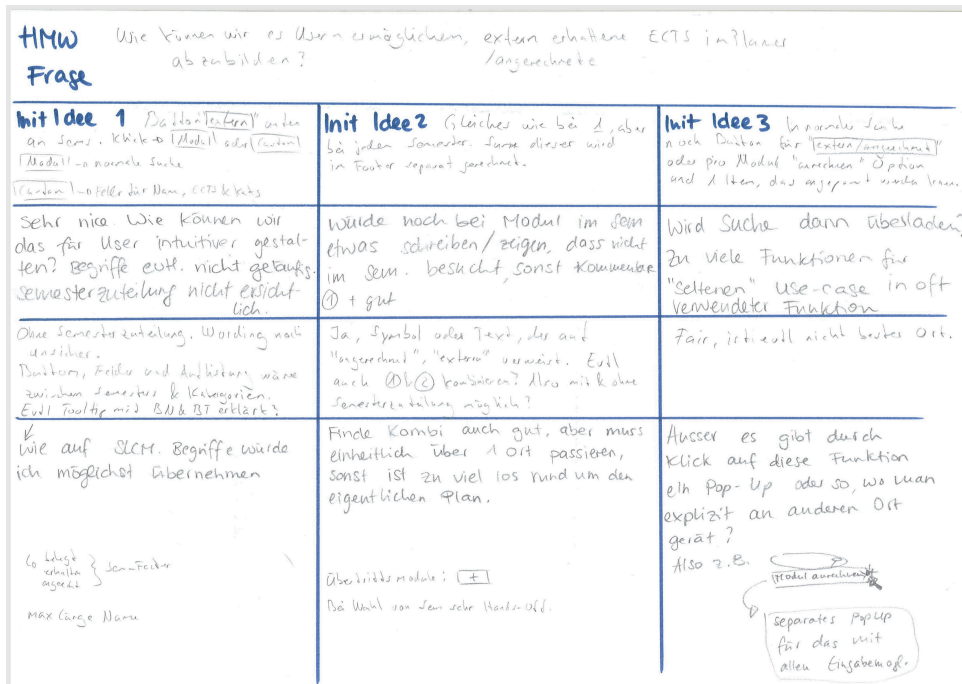 HMW Wie können wir es Usern ermöglichen, extern erhaltene ECTS im Planer
abzubilden? /angerechnete
Frage
Init Idee 1 Button "extern" unten
an Sems. Klick → Modul oder Custom
Modul → normale Suche
Custom → Felder für Name, ECTS & Kats
Init Idee 2 Gleiches wie bei 1, aber
bei jedem Semester. Summe dieser wird
im Footer separat gerechnet.
Init Idee 3 In normale Suche
noch Button für "extern/angerechnet"
oder pro Modul "anrechen" Option
und 1 Item, das angepasst werden kann.
Sehr nice. Wie können wir
das für User intuitiver gestal-
ten? Begriffe evtl. nicht geläufig.
semesterzuteilung nicht ersicht-
lich.
würde noch bei Modul im sem
etwas schreiben/zeigen, dass nicht
im sem. besucht, sonst Kommentar
① + gut
Wird Suche dann überladen?
Zu viele Funktionen für
"seltenen" use-case in oft
verwendeter Funktion
Ohne Semesterzuteilung. Wording noch
unsicher.
Button, Felder und Auflistung wäre
zwischen Semester & Kategorien.
Evtl Tooltip mit BN & BT erklärt?
Ja, Symbol oder Text, der auf
"angerechnet", "extern" verweist. Evtl
auch ① & ② kombinieren? Also mit & ohne
Semesterzuteilung möglich?
Fair, ist evtl nicht bester Ort.
wie auf SLCM. Begriffe würde
ich möglichst übernehmen
↳ belegt
erhalten
angerecht } Sem-Footer
max Länge Name
Finde Kombi auch gut, aber muss
einheitlich über 1 Ort passieren,
sonst ist zu viel los rund um den
eigentlichen Plan.
Übertrittsmodule: +
Bei Wahl von Sem sehr Hands-Off.
Ausser es gibt durch
Klick auf diese Funktion
ein Pop-Up oder so, wo man
explizit an anderen Ort
gerät?
Also z.B.
Modul anrechnen
separates PopUp
für das mit
allen Eingabemögl.